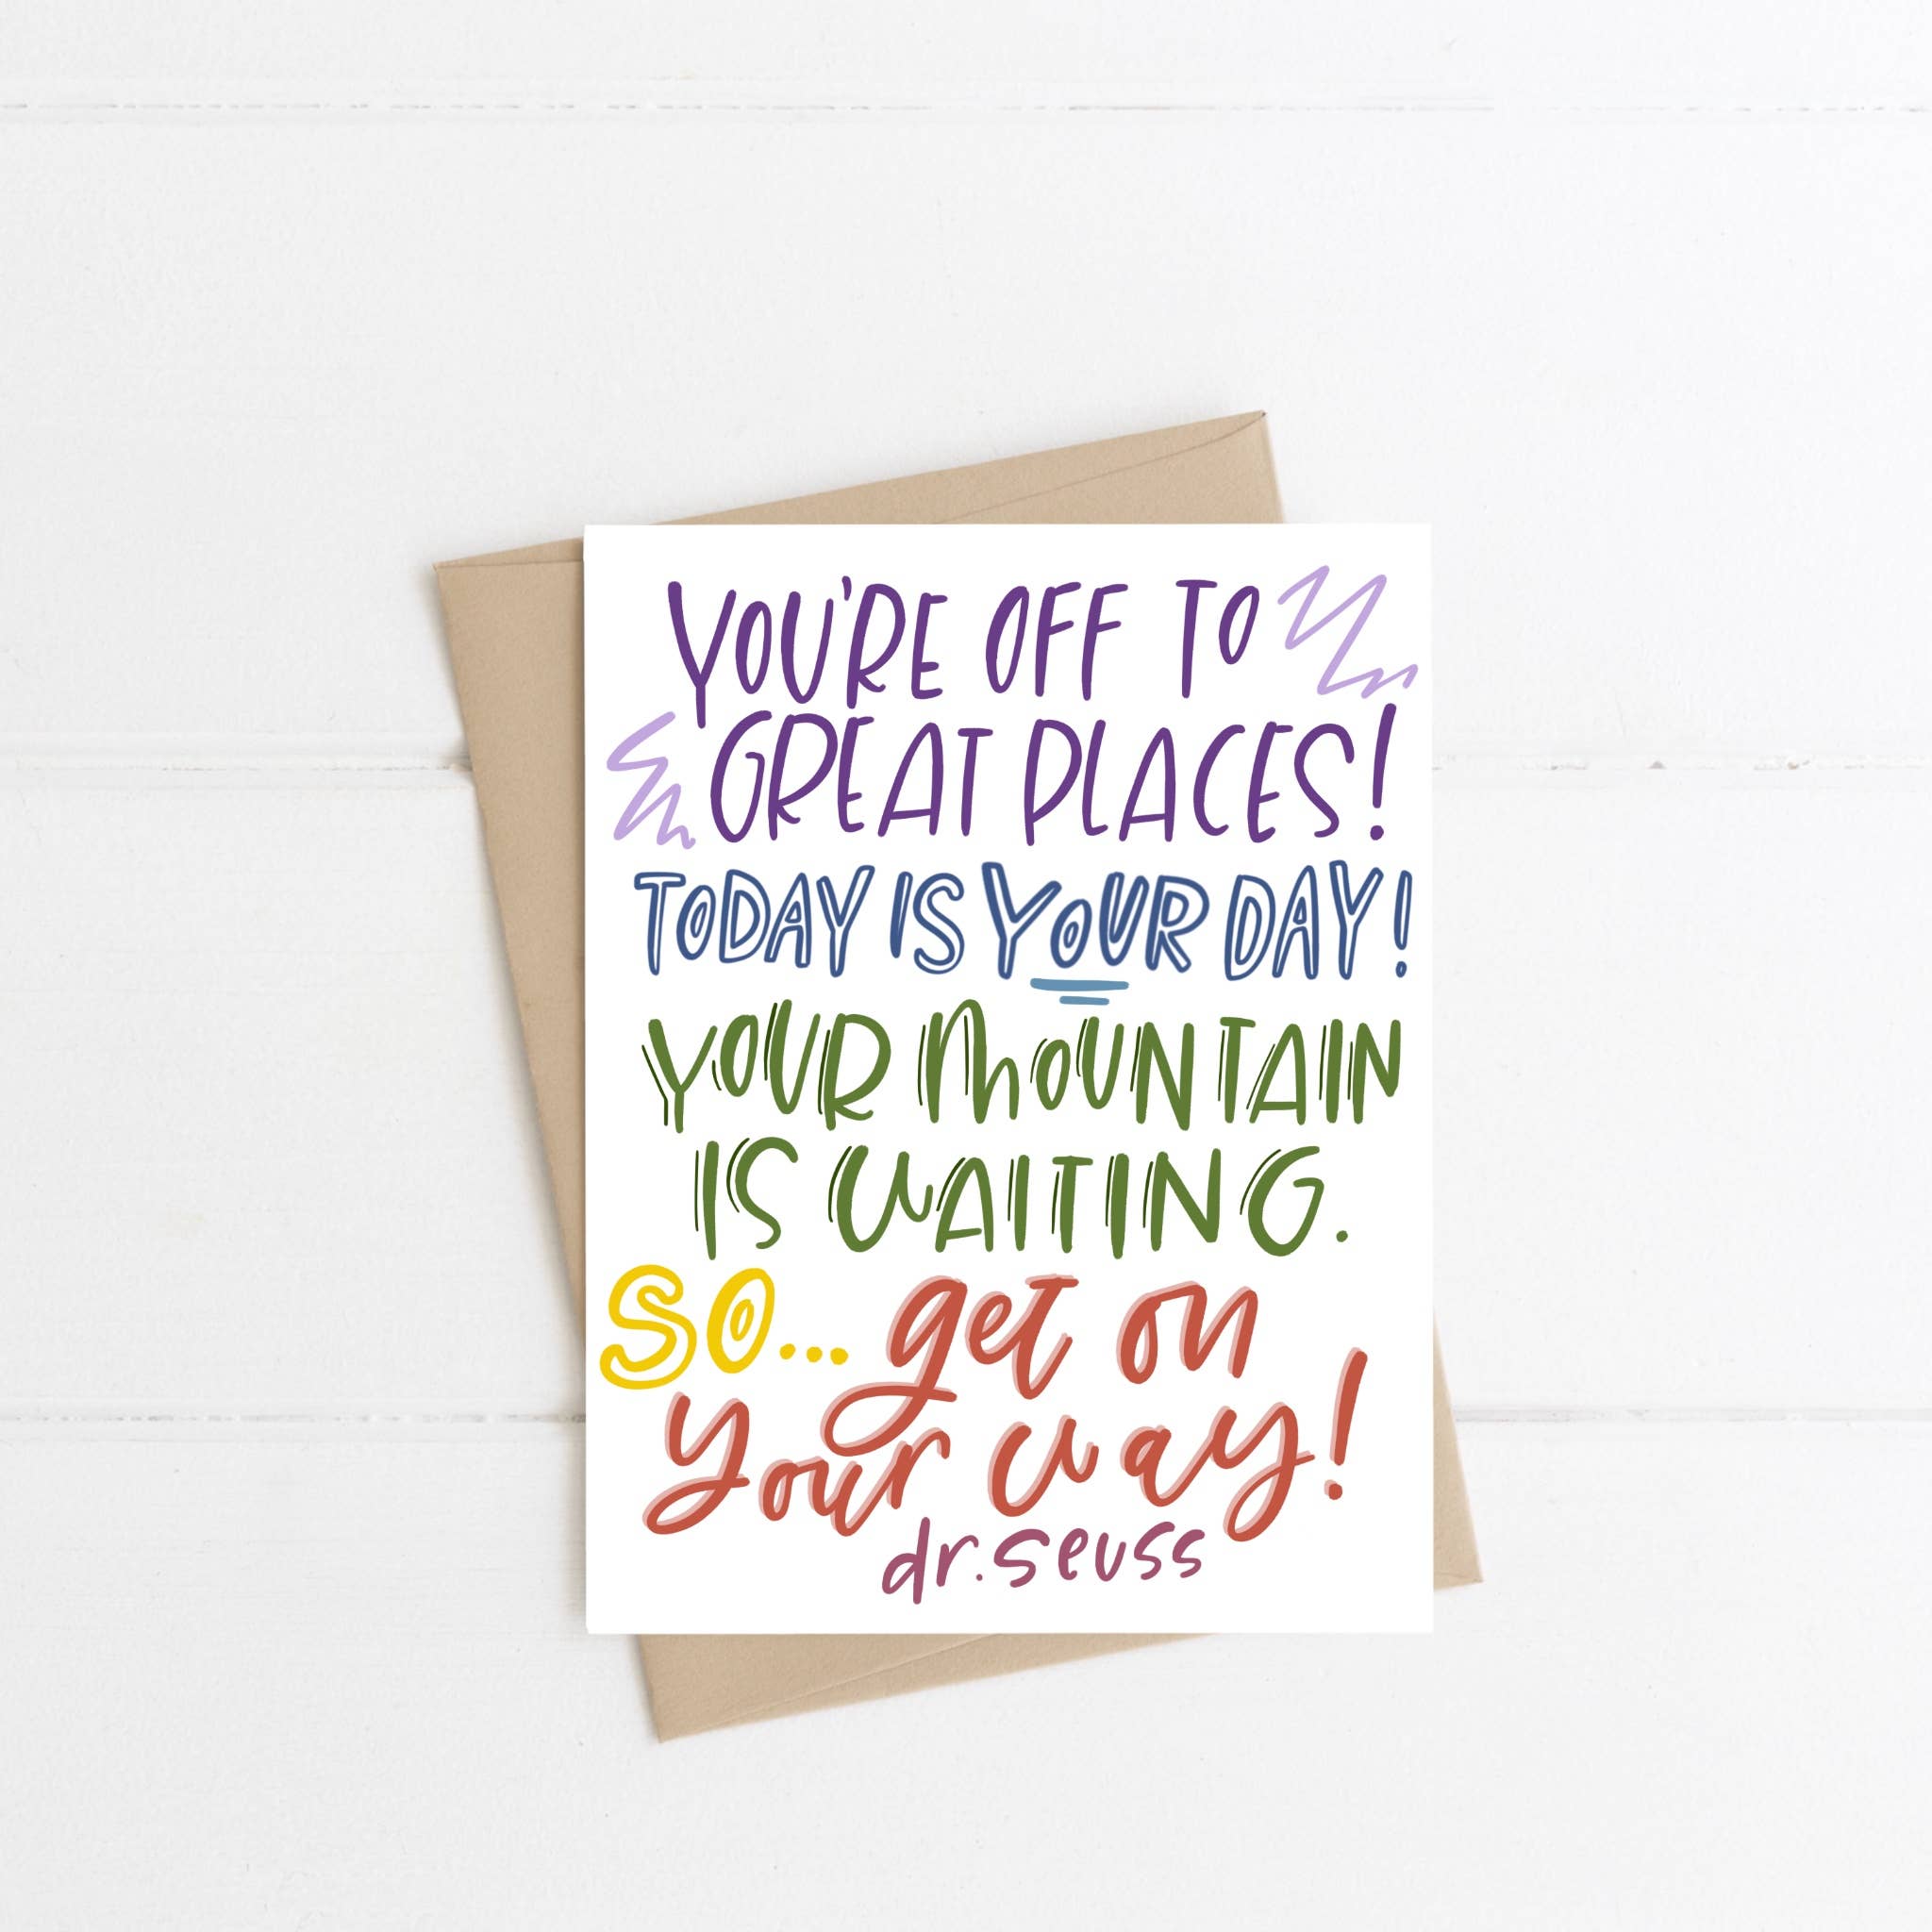 YOU'RE OFF TO
GREAT PLACES!
TODAY IS YOUR DAY!
YOUR MOUNTAIN
IS WAITING.
SO... get on
your way!
dr. seuss